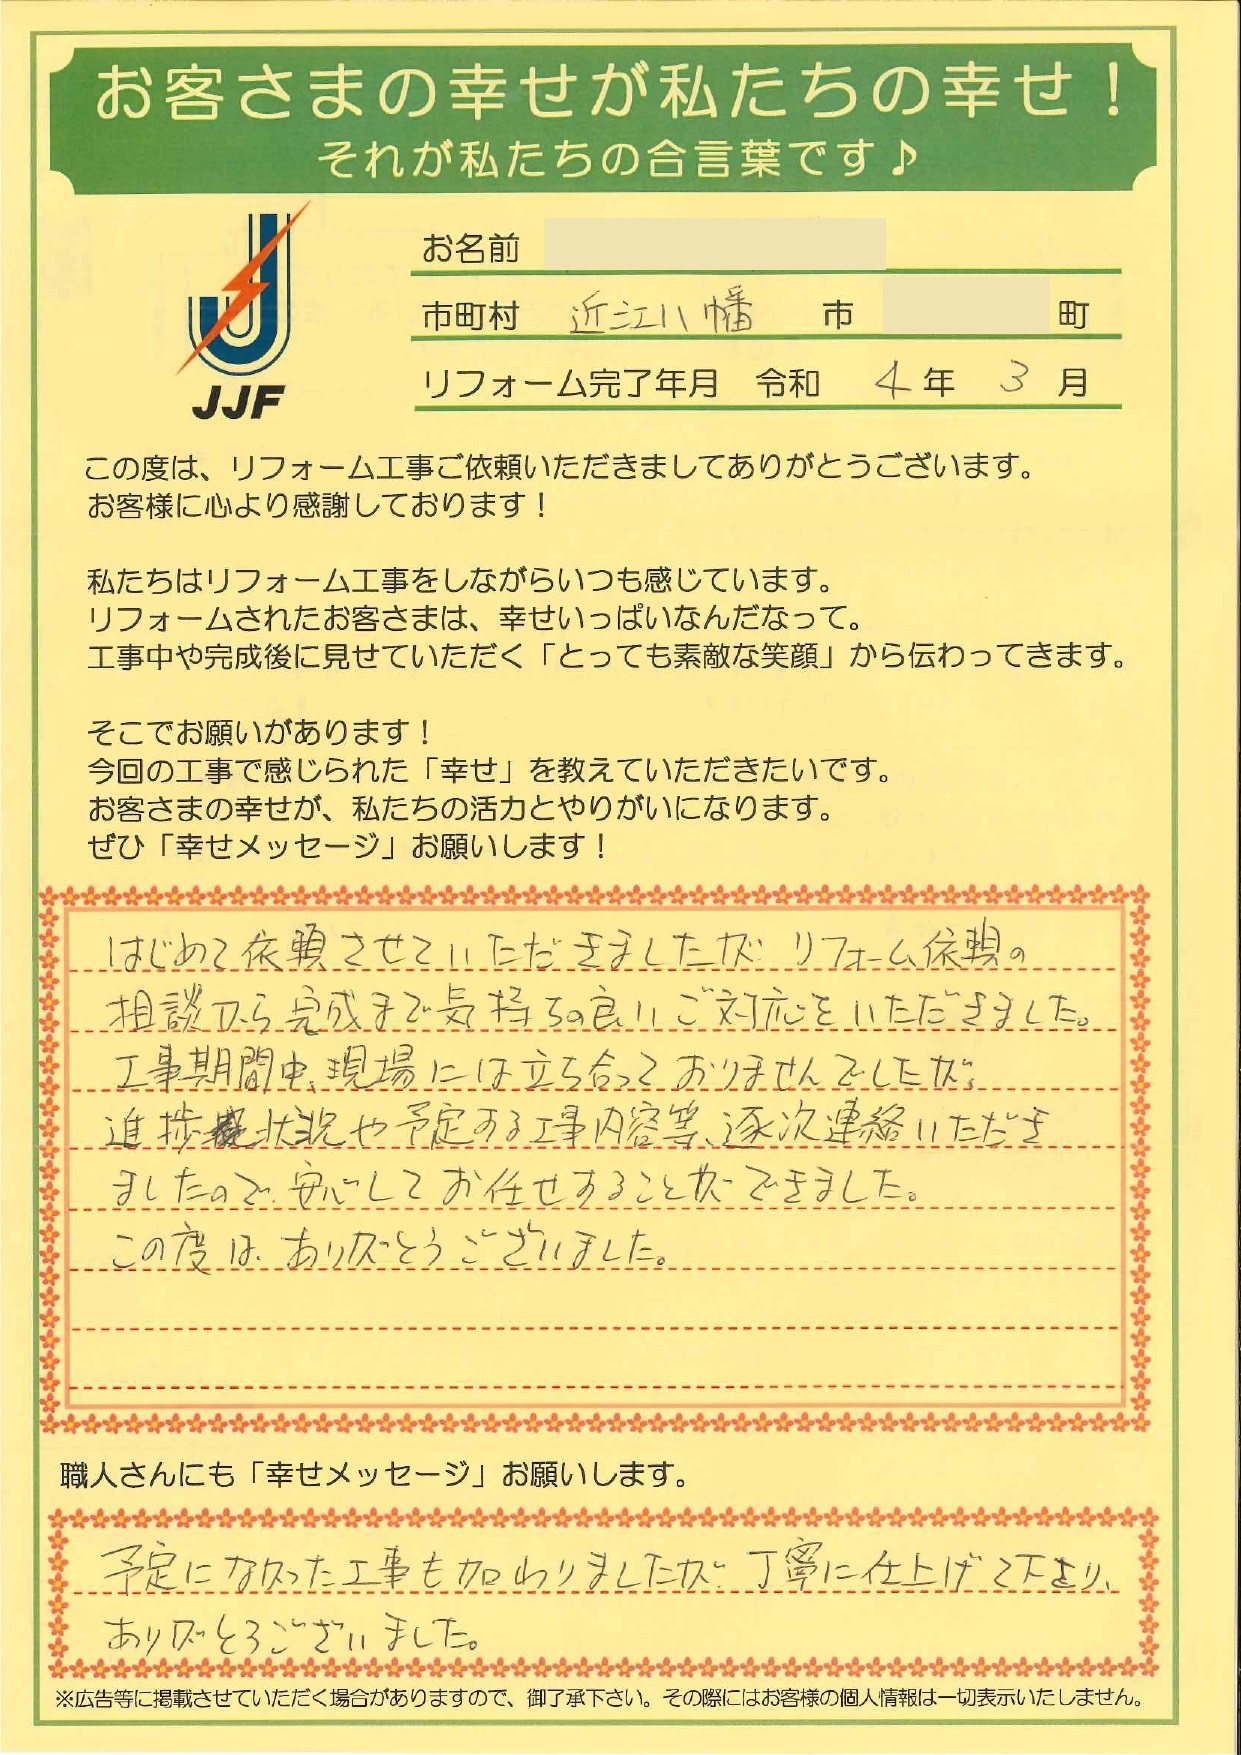 お客さまの幸せが私たちの幸せ！
それが私たちの合言葉です♪
JJF
お名前
市町村 近江八幡 市 町
リフォーム完了年月 令和 4 年 3 月
この度は、リフォーム工事ご依頼いただきましてありがとうございます。
お客様に心より感謝しております！
私たちはリフォーム工事をしながらいつも感じています。
リフォームされたお客さまは、幸せいっぱいなんだなって。
工事中や完成後に見せていただく「とっても素敵な笑顔」から伝わってきます。
そこでお願いがあります！
今回の工事で感じられた「幸せ」を教えていただきたいです。
お客さまの幸せが、私たちの活力とやりがいになります。
ぜひ「幸せメッセージ」お願いします！
はじめて依頼させていただきましたが、リフォーム依頼の
相談から完成まで気持ちの良いご対応をいただきました。
工事期間中、現場には立ち合っておりませんでしたが、
進捗状況や予定する工事内容等、逐次連絡いただき
ましたので、安心してお任せすることができました。
この度は、ありがとうございました。
職人さんにも「幸せメッセージ」お願いします。
予定になかった工事も加わりましたが、丁寧に仕上げて下さり、
ありがとうございました。
※広告等に掲載させていただく場合がありますので、御了承下さい。その際にはお客様の個人情報は一切表示いたしません。